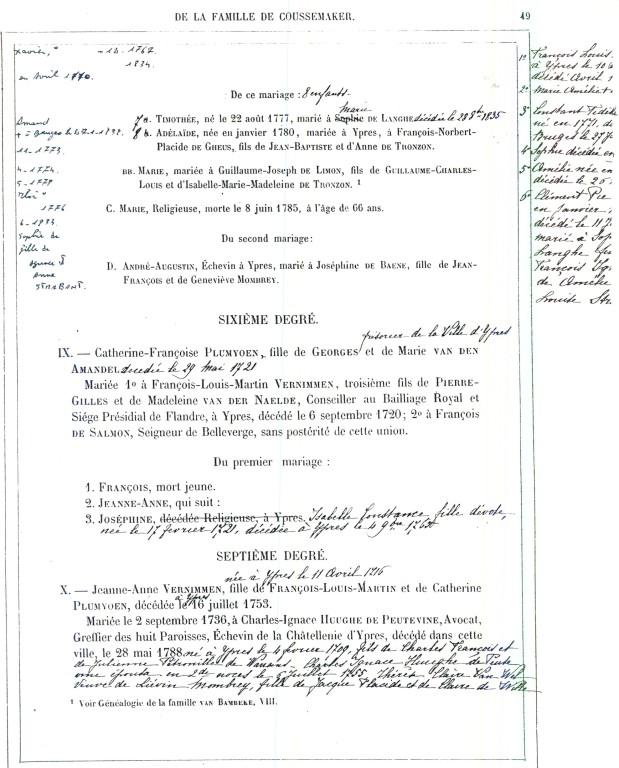 DE LA FAMILLE DE COUSSEMAKER.
49
xavier, " - 12-1767.
1834.
en avril 1770.
Amand
11-1773
4-1774.
5-1779
1776
Sophie de
fille de
anne
STRABANT.
De ce mariage : 8 enfants.
7 a. TIMOTHÉE, né le 22 août 1777, marié à Sophie Marie DE LANGHE décédée le 28 8bre 1835
8 b. ADÉLAÏDE, née en janvier 1780, mariée à Ypres, à François-Norbert-
Placide DE GHEUS, fils de JEAN-BAPTISTE et d'Anne DE TRONZON.
BB. MARIE, mariée à Guillaume-Joseph DE LIMON, fils de GUILLAUME-CHARLES-
LOUIS et d'Isabelle-Marie-Madeleine DE TRONZON. ¹
C. MARIE, Religieuse, morte le 8 juin 1785, à l'âge de 66 ans.
Du second mariage:
D. ANDRÉ-AUGUSTIN, Échevin à Ypres, marié à Joséphine DE BAENE, fille de JEAN-
FRANÇOIS et de Geneviève MOMBREY.
1° François Louis
à Ypres le 10
décédé Avril 1
2° Marie Amélie
3° Constant Fidèle
né en 1771. d
Bruges le 27
4° Sophie décédée en
5° Amélie née en
décédée le 25
6° Clément Pie
en Janvier
décédé le 11
marié à Sop
Langhe
François
de Amélie
Louise
SIXIÈME DEGRÉ.
trésorier de la Ville d'Ypres
IX. — Catherine-Françoise PLUMYOEN, fille de GEORGES et de Marie VAN DEN
AMANDEL décédée le 29 mai 1721
Mariée 1° à François-Louis-Martin VERNIMMEN, troisième fils de PIERRE-
GILLES et de Madeleine VAN DER NAELDE, Conseiller au Bailliage Royal et
Siége Présidial de Flandre, à Ypres, décédé le 6 septembre 1720; 2° à François
DE SALMON, Seigneur de Belleverge, sans postérité de cette union.
Du premier mariage :
1. FRANÇOIS, mort jeune.
2. JEANNE-ANNE, qui suit :
3. JOSÉPHINE, décédée Religieuse, à Ypres. Isabelle Constance fille dévote,
née le 17 février 1721, décédée à Ypres le 4 9bre
SEPTIÈME DEGRÉ.
née à Ypres le 11 Avril 1716
X. — Jeanne-Anne VERNIMMEN, fille de FRANÇOIS-LOUIS-MARTIN et de Catherine
PLUMYOEN, décédée à Ypres le 16 juillet 1753.
Mariée le 2 septembre 1736, à Charles-Ignace HUUGHE DE PEUTEVINE, Avocat,
Greffier des huit Paroisses, Échevin de la Châtellenie d'Ypres, décédé dans cette
ville, le 28 mai 1788 né à Ypres le 4 février 1709, fils de Charles François et
de Julienne Pétronille de Charles Ignace Huughe de Peute
vine épousa en 2des noces le 6 Juillet 1755 Thérèse Claire Van
veuve de Liévin Mombrey, fille de Jacque Placide et de Claire de
¹ Voir Généalogie de la famille VAN BAMBEKE, VIII.